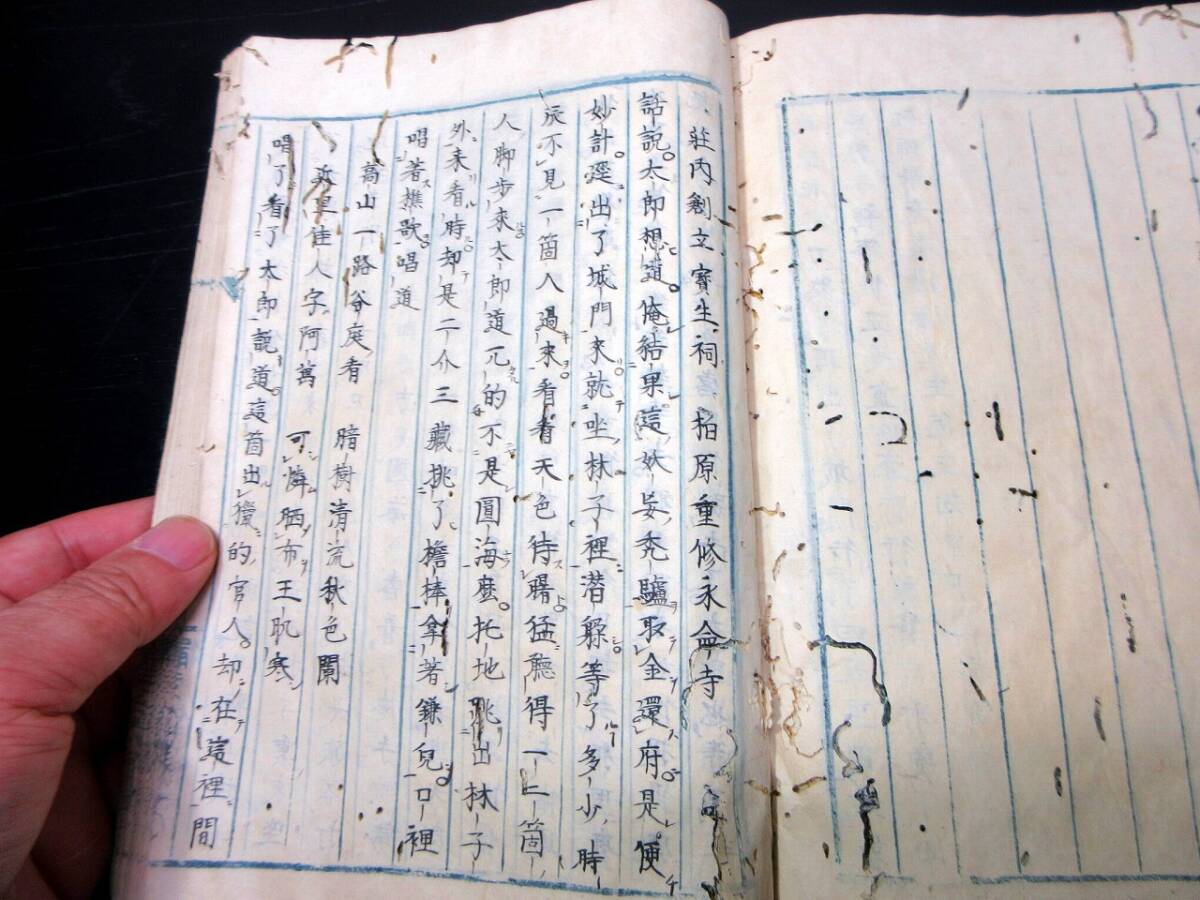 莊内創立寳生祠 柏原重修永侖寺
話說太郎想道俺結果這妖妄禿驢取金還府是便
妙計逕出了城門來就坐林子裡潛躱等了多少時
辰不見一箇人過來看看天色待曙猛聽得一二箇
人脚步來太郎道兀的不是圓海麽托地跳出林子
外來看時却是二介三藏挑了檐棒拿著鎌兒口裡
唱著樵歌唱道
高山一路谷庭看 暗樹清流秋色闌
佳人字阿萬 可憐晒布王肌寒
唱了看了太郎說道這箇出獵的官人却在這裡間